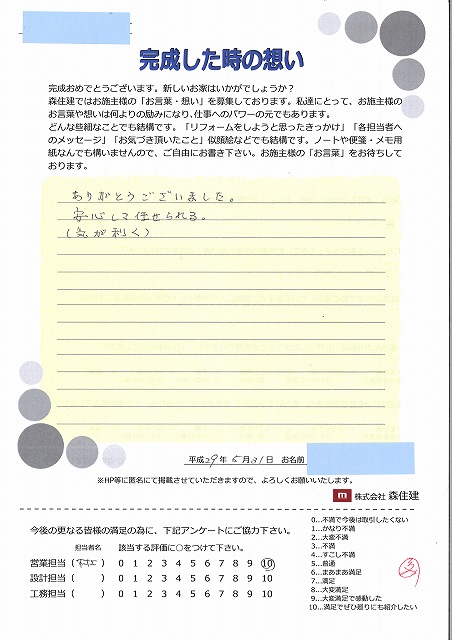 完成した時の想い
完成おめでとうございます。新しいお家はいかがでしょうか？
森住建ではお施主様の「お言葉・想い」を募集しております。私達にとって、お施主様の
お言葉や想いは何よりの励みになり、仕事へのパワーの元でもあります。
どんな些細なことでも結構です。「リフォームをしようと思ったきっかけ」「各担当者へ
のメッセージ」「お気づき頂いたこと」似顔絵などでも結構です。ノートや便箋・メモ用
紙なんでも構いませんので、ご自由にお書き下さい。お施主様の「お言葉」をお待ちして
おります。
ありがとうございました。
安心して任せられる。
(気が利く)
平成29年5月31日 お名前
※HP等に匿名にて掲載させていただきますので、よろしくお願いいたします。
m 株式会社 森住建
今後の更なる皆様の満足の為に、下記アンケートにご協力下さい。
担当者名 該当する評価に○をつけて下さい。
営業担当 ( ) 0 1 2 3 4 5 6 7 8 9 10
設計担当 ( ) 0 1 2 3 4 5 6 7 8 9 10
工務担当 ( ) 0 1 2 3 4 5 6 7 8 9 10
0…不満で今後は取引したくない
1…かなり不満
2…大変不満
3…不満
4…すこし不満
5…普通
6…まあまあ満足
7…満足
8…大変満足
9…大変満足で感動した
10…満足でぜひ廻りにも紹介したい